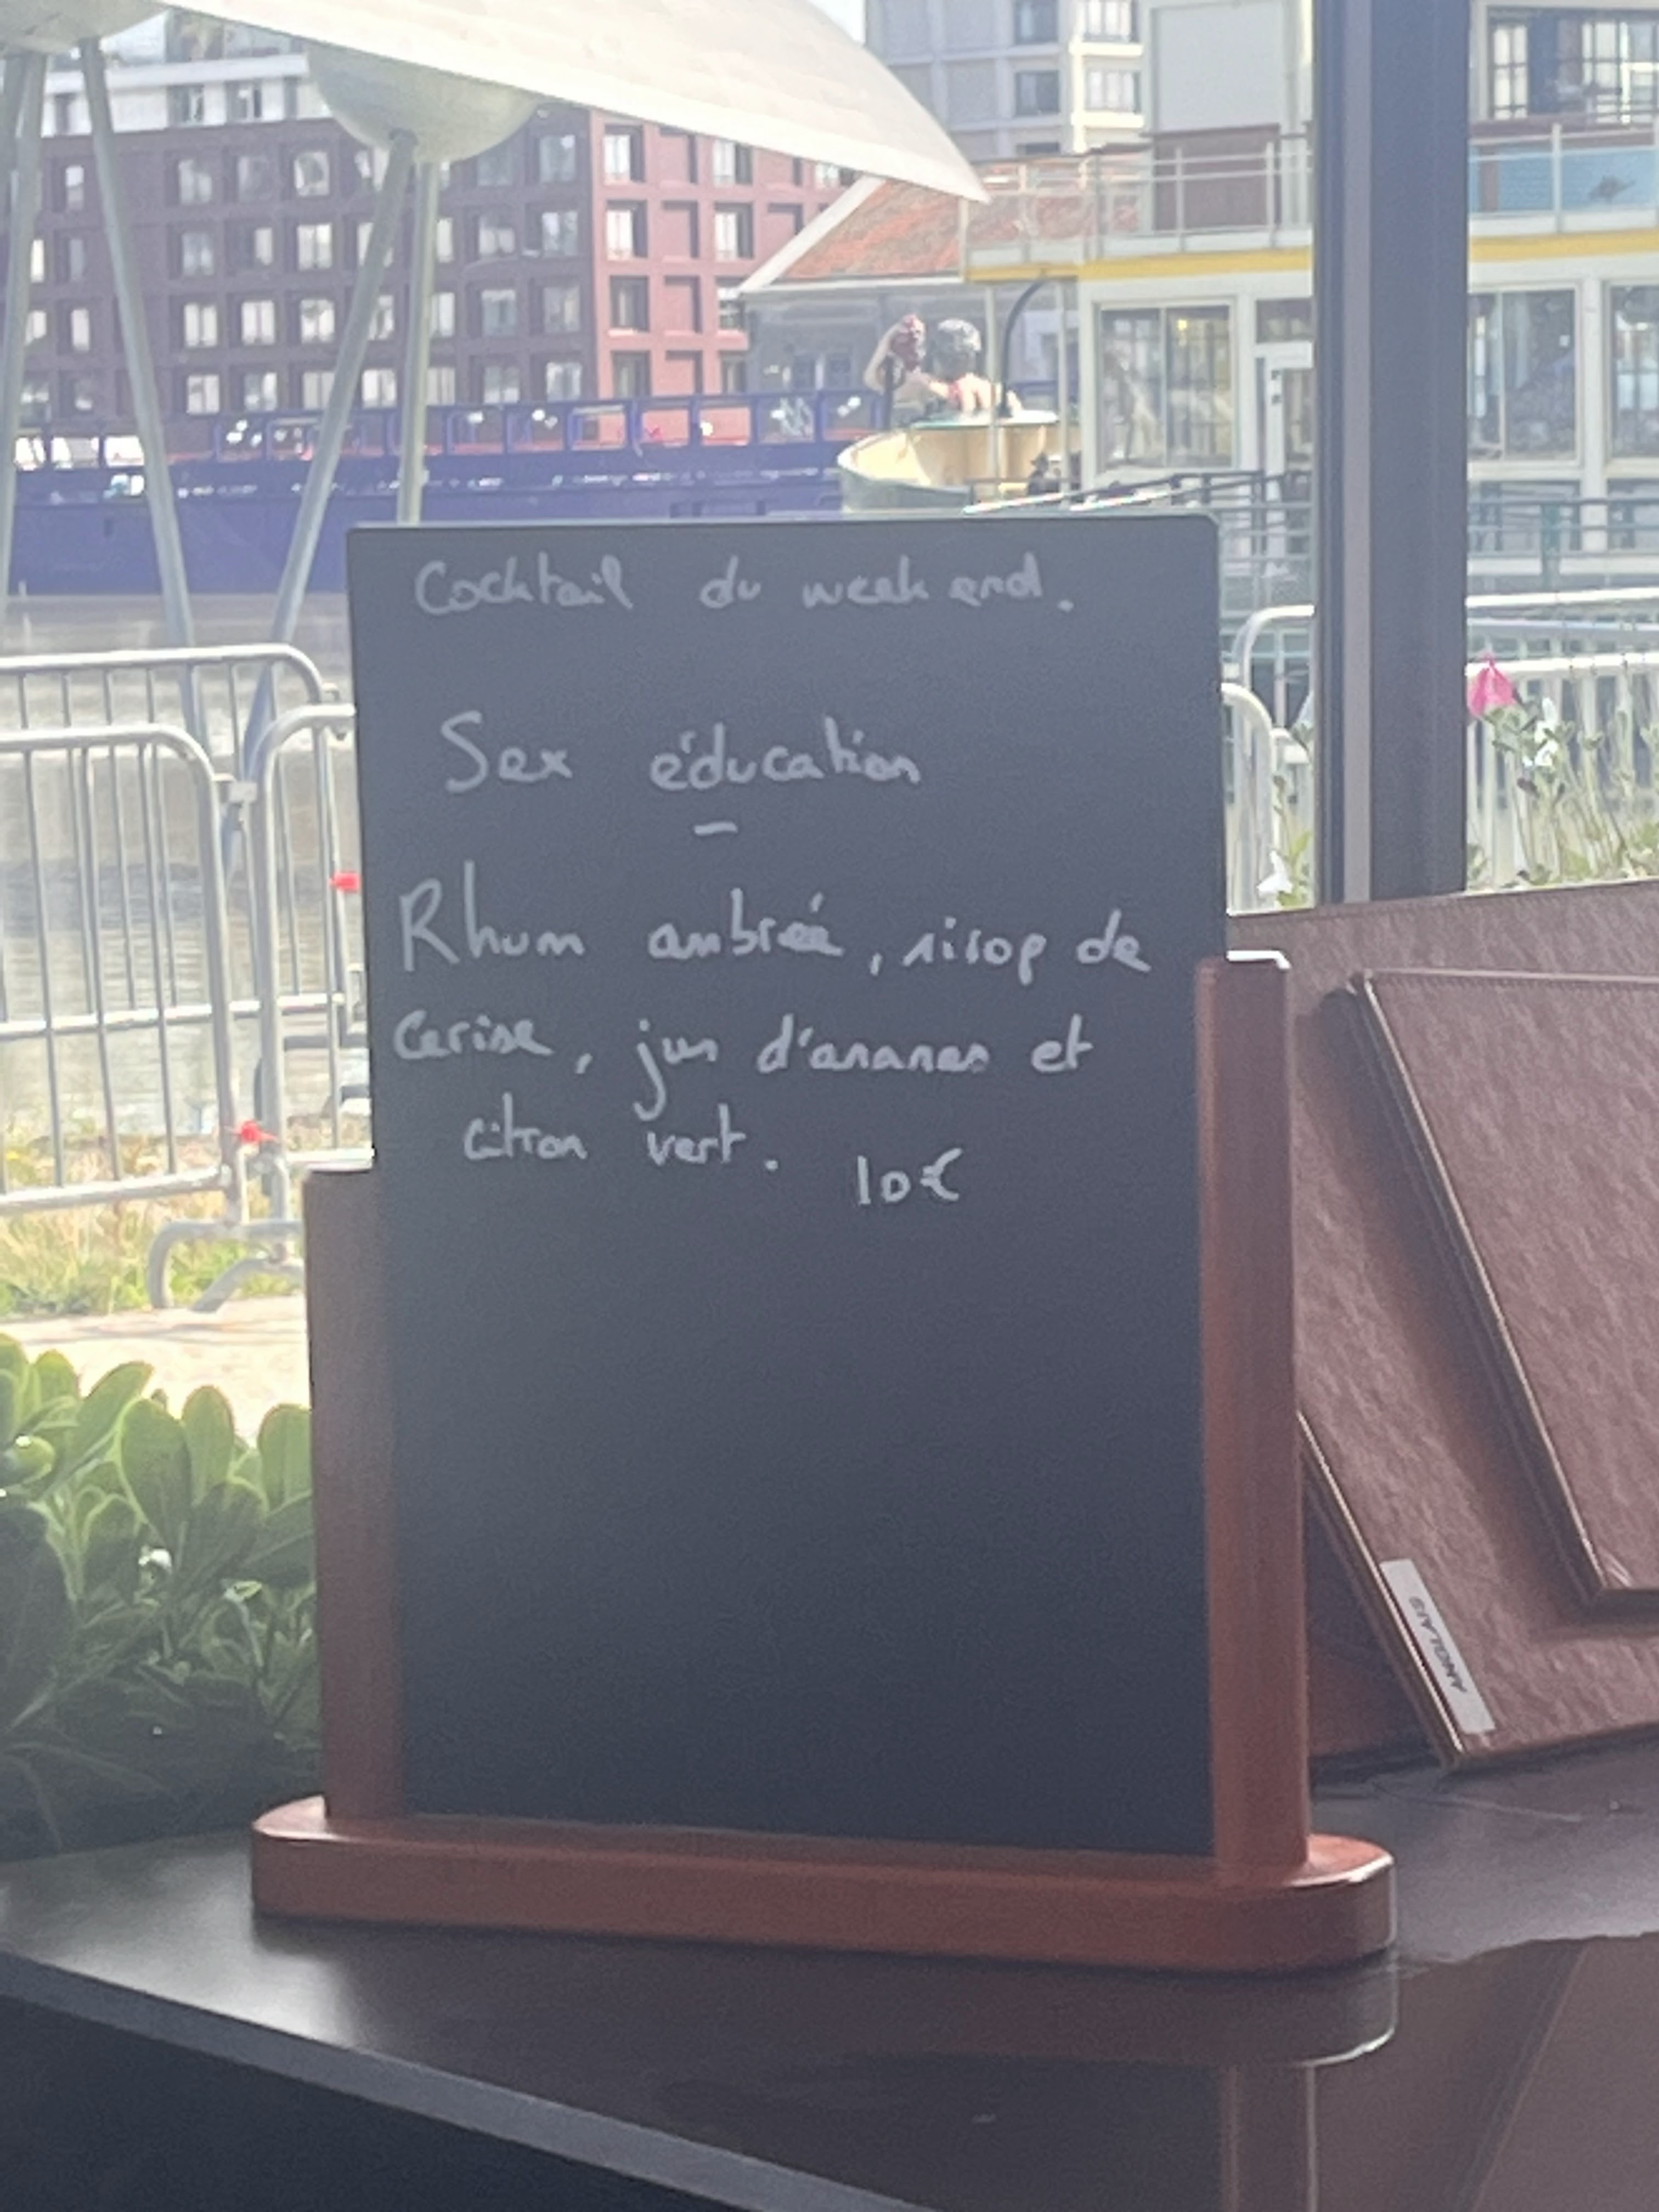 Cocktail du week end.
Sex éducation
-
Rhum ambréé, sirop de
Cerise, jus d'ananas et
citron vert. 10€
ANGLAIS